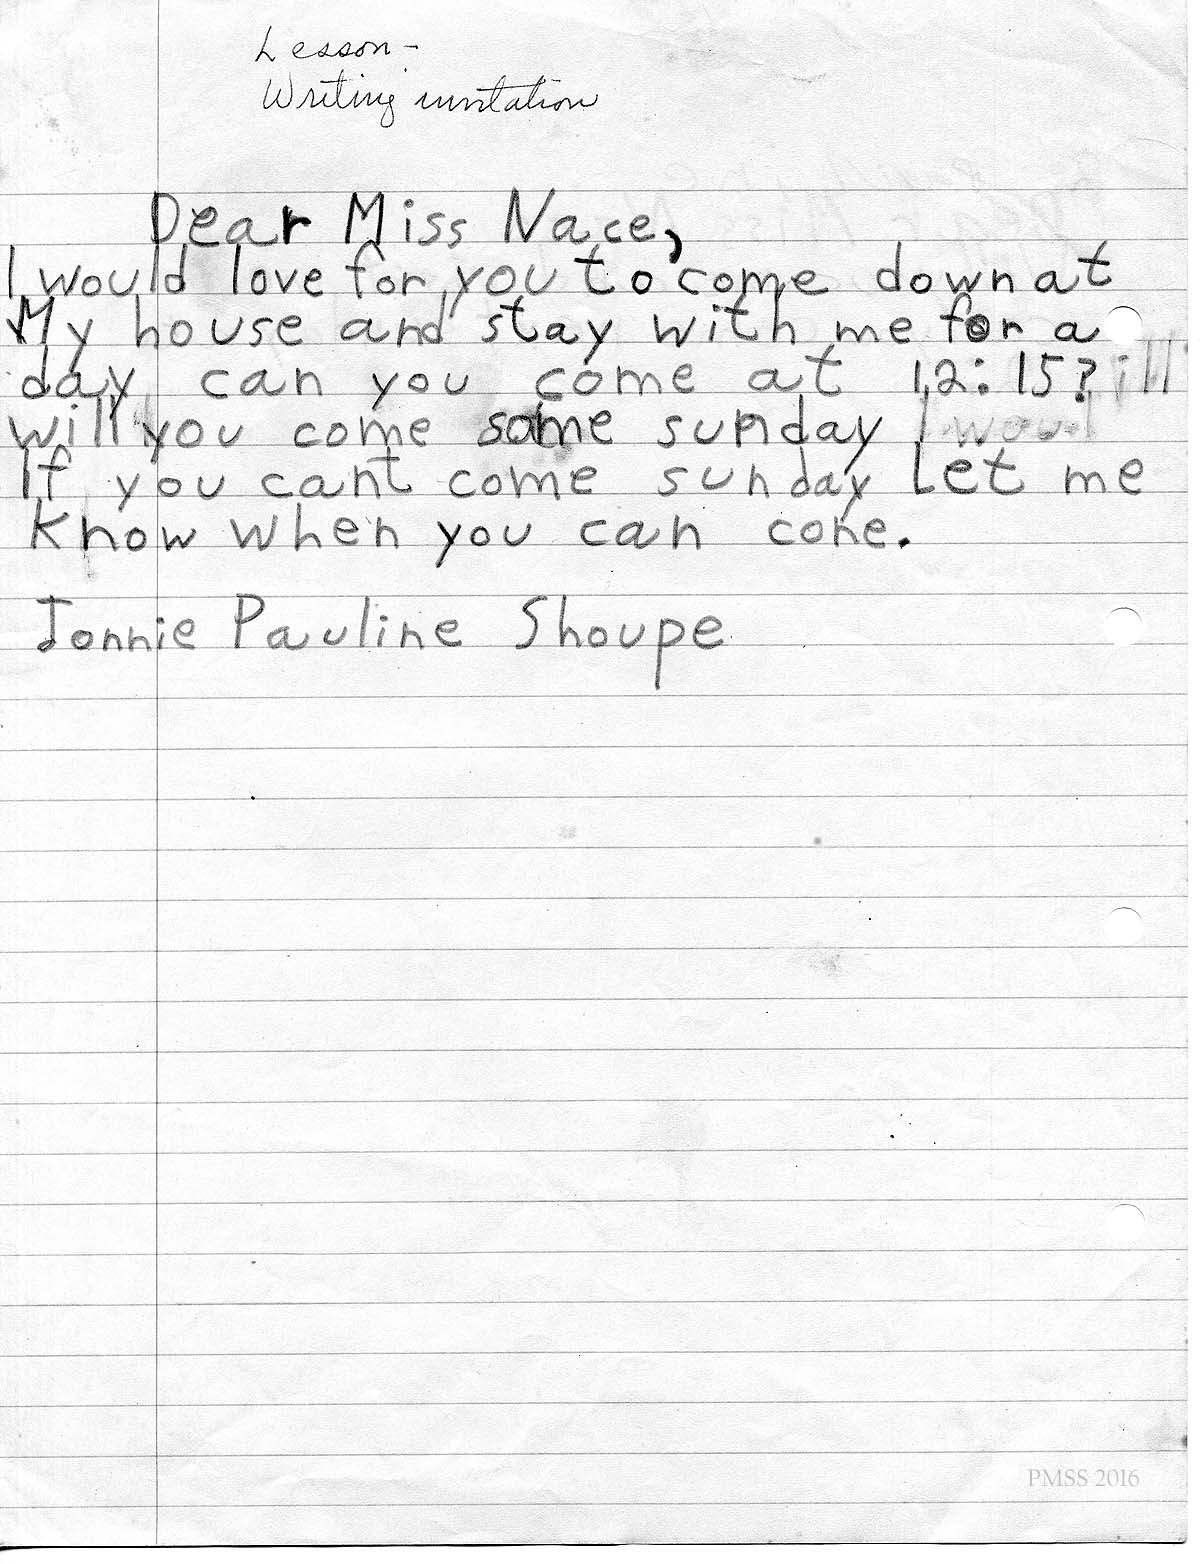 Lesson -
Writing invitation
Dear Miss Nace,
I would love for you to come down at
My house and stay with me for a
day can you come at 12:15?
will you come some sunday
If you cant come sunday Let me
know when you can come.
Jonnie Pauline Shoupe
PMSS 2016